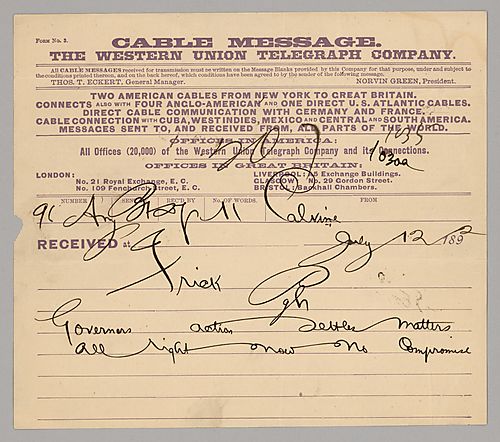 Form No. 2.
CABLE MESSAGE.
THE WESTERN UNION TELEGRAPH COMPANY.
All CABLE MESSAGES received for transmission must be written on the Message Blanks provided by this Company for that purpose, under and subject to
the conditions printed thereon, and on the back hereof, which conditions have been agreed to by the sender of the following message.
THOS. T. ECKERT, General Manager. NORVIN GREEN, President.
TWO AMERICAN CABLES FROM NEW YORK TO GREAT BRITAIN.
CONNECTS ALSO WITH FOUR ANGLO-AMERICAN AND ONE DIRECT U.S. ATLANTIC CABLES.
DIRECT CABLE COMMUNICATION WITH GERMANY AND FRANCE.
CABLE CONNECTION WITH CUBA, WEST INDIES, MEXICO AND CENTRAL AND SOUTH AMERICA.
MESSAGES SENT TO, AND RECEIVED FROM, ALL PARTS OF THE WORLD.
OFFICES IN AMERICA:
All Offices (20,000) of the Western Union Telegraph Company and its Connections.
1030a
OFFICES IN GREAT BRITAIN:
LONDON: LIVERPOOL: A5 Exchange Buildings.
No. 21 Royal Exchange, E. C. GLASGOW: No. 29 Gordon Street.
No. 109 Fenchurch Street, E. C. BRISTOL: Backhall Chambers.
NUMBER SENT BY REC'D BY No. OF WORDS.
11
RECEIVED at July 12 1892
Frick
Pgh
Governors action settles matters
All right now No Compromise